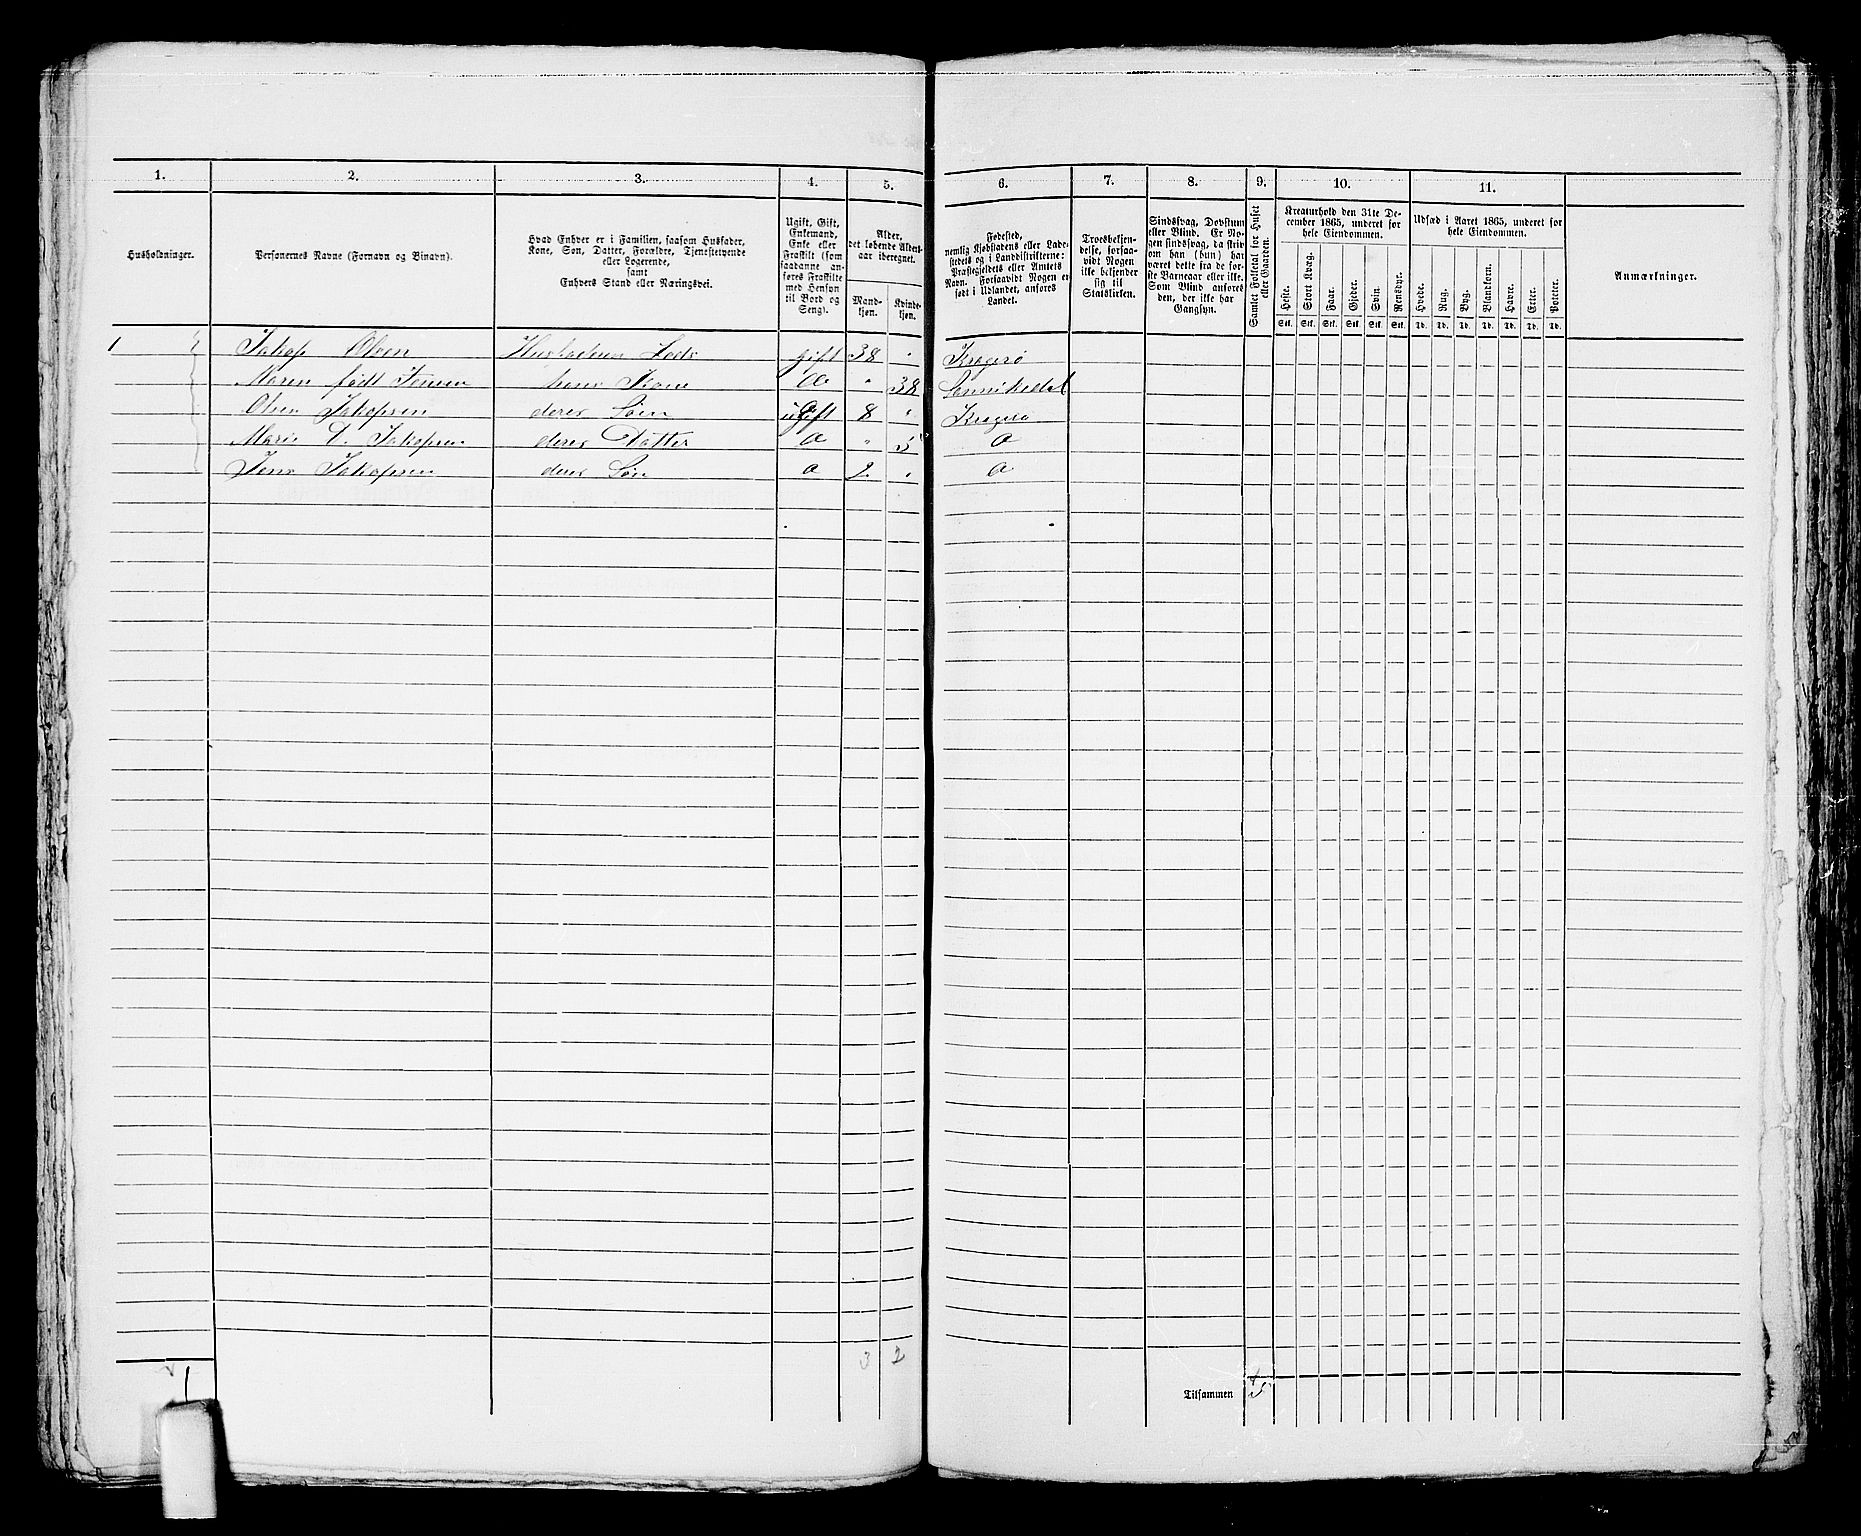 1. 2. 3. 4. 5. 6. 7. 8. 9. 10. 11.
Husholdninger.
Personernes Navne (Fornavn og Binavn).
Hvad Enhver er i Familien, saasom Husfader,
Kone, Søn, Datter, Forældre, Tjenestetyende
eller Logerende,
samt
Enhvers Stand eller Næringsvei.
Ugift, Gift,
Enkemand,
Enke eller
Fraskilt (som
saadanne an-
føres Fraskilte
med Hensyn
til Bord og
Seng).
Alder,
det løbende Alders-
aar iberegnet.
Mand-
kjøn.
Kvinde-
kjøn.
Fødested,
nemlig Kjøbstadens eller Lade-
stedets og i Landdistrikterne:
Præstegjeldets eller Amtets
Navn. Forsaavidt Nogen er
født i Udlandet, anføres
Landet.
Troesbekjen-
delse, forsaa-
vidt Nogen
ikke bekjender
sig til
Statskirken.
Sindssvag, Døvstum
eller Blind. Er No-
gen sindssvag, da skriv
om han (hun) har
været dette fra de for-
ste Barneaar eller ikke.
Som Blind anføres
den, der ikke har
Gangsyn.
Samlet Folketal for Huset
eller Gaarden.
Kreaturhold den 31te De-
cember 1865, underet for
hele Eiendommen.
Heste. Stort Kvæg. Faar. Gjeder. Svin. Rensdyr.
Stk. Stk. Stk. Stk. Stk. Stk.
Udsæd i Aaret 1865, underet for
hele Eiendommen.
Hvede. Rug. Byg. Blandkorn. Havre. Erter. Poteter.
Td. Td. Td. Td. Td. Td. Td.
Anmærkninger.
1 Jakop Olsen Husfaderen Lods gift 38 " Kragerø
Maren født Jensen hans Kone do " 38 Sannikedal
Olsen Jakopsen deres Søn ugift 8 " Kragerø
Marie D. Jakopsen deres Datter do " 5 do
Jens Jakopsen deres Søn do 2 " do
3 2
1
Tilsammen 5